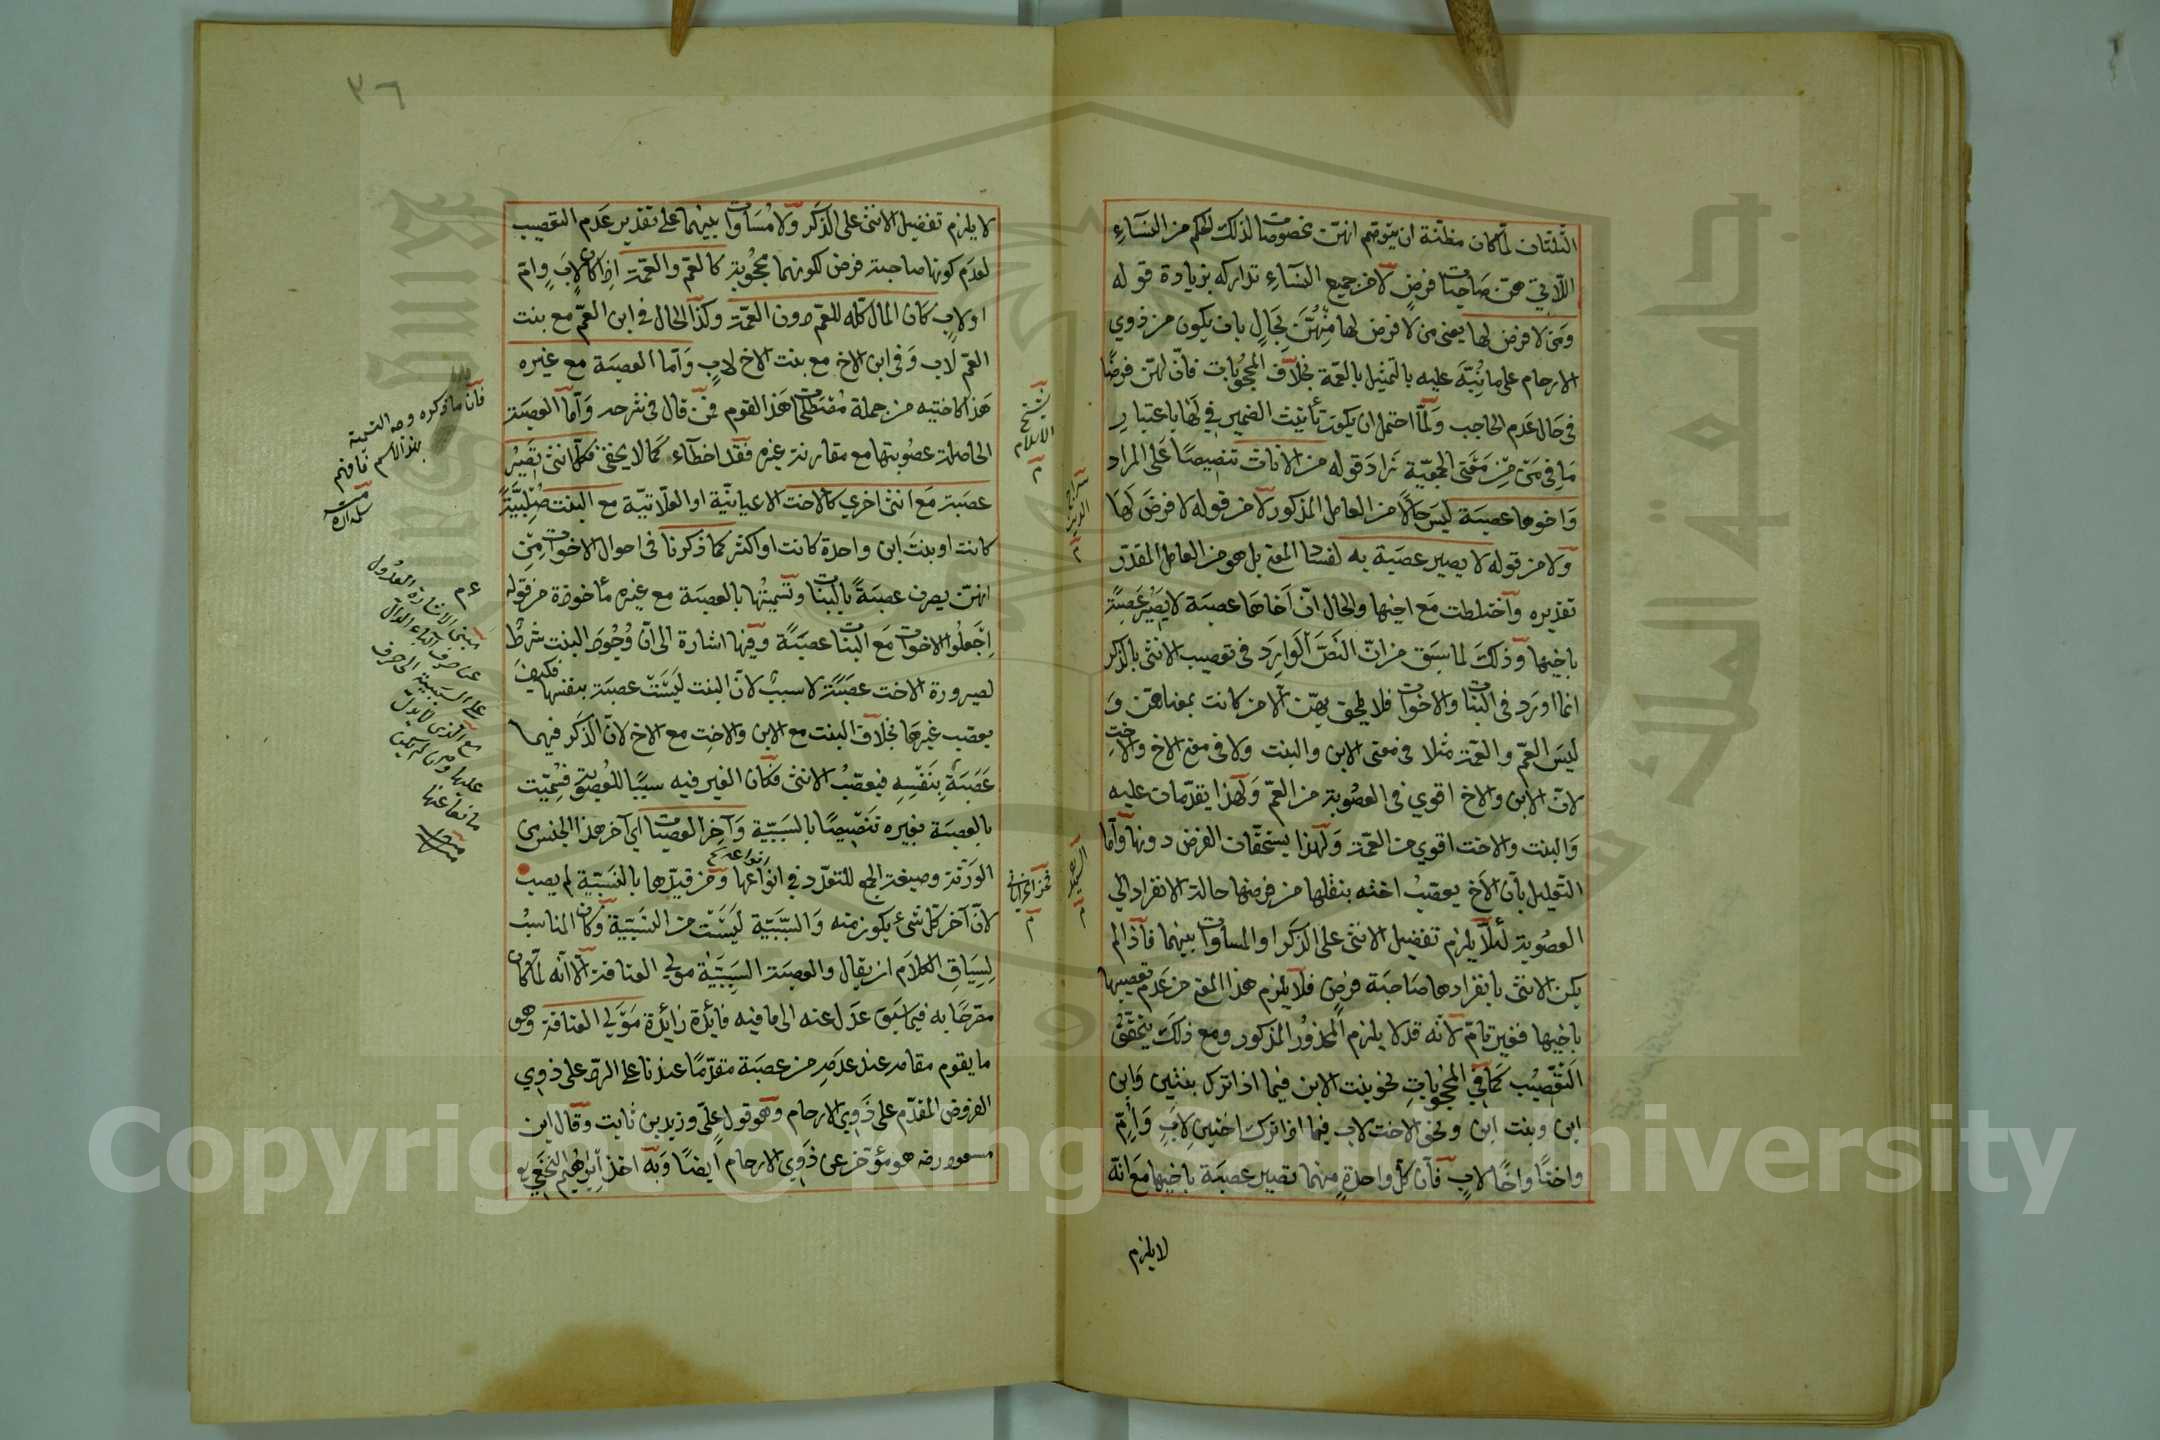 الثلثان لما كان مظنة ان يتوهم انهن مخصوصات لذلك الحكم من النساء
اللاتي هن صاحبات فرض لا من جميع النساء تداركه بزيادة قوله
ومن لا فرض لها يعنى من لا فرض لها منهن بحال بان يكون من ذوي
الارحام على ما نبه عليه بالتمثيل بالعمة بخلاف المحجوبات فان لهن فرضا
في حال عدم الحاجب ولما احتمل ان يكون تأنيث الضمير في لها باعتبار
ما في من من معنى الجمعية زاد قوله من الاناث تنصيصا على المراد
واخوها عصبة ليس حالا من العامل المذكور لا من قوله لا فرض لها
ولا من قوله لا يصير عصبة به لفساد المعنى بل هو من العامل المقدر
تقديره واختلطت مع اخيها والحال ان اخاها عصبة لا يصير عصبة
باخيها وذلك لما سبق من ان النص الوارد في تعصيب الانثى بالذكر
انما ورد في البنات والاخوات فلا يلحق بهن الا من كانت بمعناهن و
ليس العم والعمة مثلا في معنى الابن والبنت ولا في معنى الاخ والاخت
لان الابن والاخ اقوي في العصوبة من العم ولهذا يتقدمان عليه
والبنت والاخت اقوي من العمة ولهذا يستحقان الفرض دونها واما
التعليل بان الاخ يعصب اخته بنقلها من فرضها حالة الانفراد الي
العصوبة لئلا يلزم تفضيل الانثى على الذكر او المساوات بينهما فاذا لم
يكن الانثى بانفرادها صاحبة فرض فلا يلزم هذا المعنى من عدم تعصيبها
باخيها فغير تام لانه قد لا يلزم المحذور المذكور ومع ذلك يتحقق
التعصيب كما في المحجوبات نحو بنت الابن فيما اذا ترك بنتين وابن
ابن وبنت ابن ونحو الاخت لاب فيما اذا ترك اختين لاب وام
واختا واخا لاب فان كل واحدة منهما تصير عصبة باخيها مع انه
لا يلزم
سراج الدين م
السميد م
٣٦
لا يلزم تفضيل الانثى على الذكر ولا مساوات بينهما على تقدير عدم التعصيب
لعدم كونها صاحبة فرض لكونهما محجوبة كالعم والعمة اذا كانا لاب وام
او لاب كان المال كله للعم دون العمة وكذا الحال في ابن العم مع بنت
العم لاب وفي ابن الاخ مع بنت الاخ لاب واما العصبة مع غيره
هذا كاختيه من جملة مصطلحات هذا القوم فمن قال في شرحه واما العصبة
الحاصلة عصوبتها مع مقارنة غيره فقد اخطاء كما لا يخفى فكل انثى تصير
عصبة مع انثى اخري كالاخت الاعيانية او العلاتية مع البنت صلبية
كانت او بنت ابن واحدة كانت او اكثر كما ذكرنا في احوال الاخوات من
انهن يصرن عصبة بالبنات وتسميتها بالعصبة مع غيره مأخوذة من قوله
اجعلوا الاخوات مع البنات عصبة وفيها اشارة الى ان وجود البنت شرط
لصيرورة الاخت عصبة لا سبب لان البنت ليست عصبة بنفسها فكيف
يعصب غيرها بخلاف البنت مع الابن والاخت مع الاخ لان الذكر فيهما
عصبة بنفسه فيعصب الانثى فكان الغير فيه سببا للعصوبة فسميت
بالعصبة بغيره تنصيصا بالسببية وآخر العصبات اي آخر هذا الجنس من
الورثة وصيغة الجمع للتعدد في انواعها ومن قيدها بالنسبية لم يصب
لان آخر كل شيء يكون منه والسببية ليست من النسبية وكان المناسب
لسياق الكلام ان يقال والعصبة السببية مولى العتاقة الا انه لما كان
مصرحا به فيما سبق عدل عنه الى ما فيه فائدة زائدة مولي العتاقة وهو
ما يقوم مقامه عند عدمه من عصبة مقدما عندنا على الرد على ذوي
الفروض المقدم على ذوي الارحام وهو قول علي وزيد بن ثابت وقال ابن
مسعود رضه هو مؤخر عن ذوي الارحام ايضا وبه اخذ ابراهيم النخعي
شيخ الاسلام م
فان ما ذكره وجه التسمية
بهذا الاسم فافهم
منه
مبنى الاشارة العدول
عن حرف الباء الدال
على السببية الى حرف
مع الذى لا يدل
عليها
منه